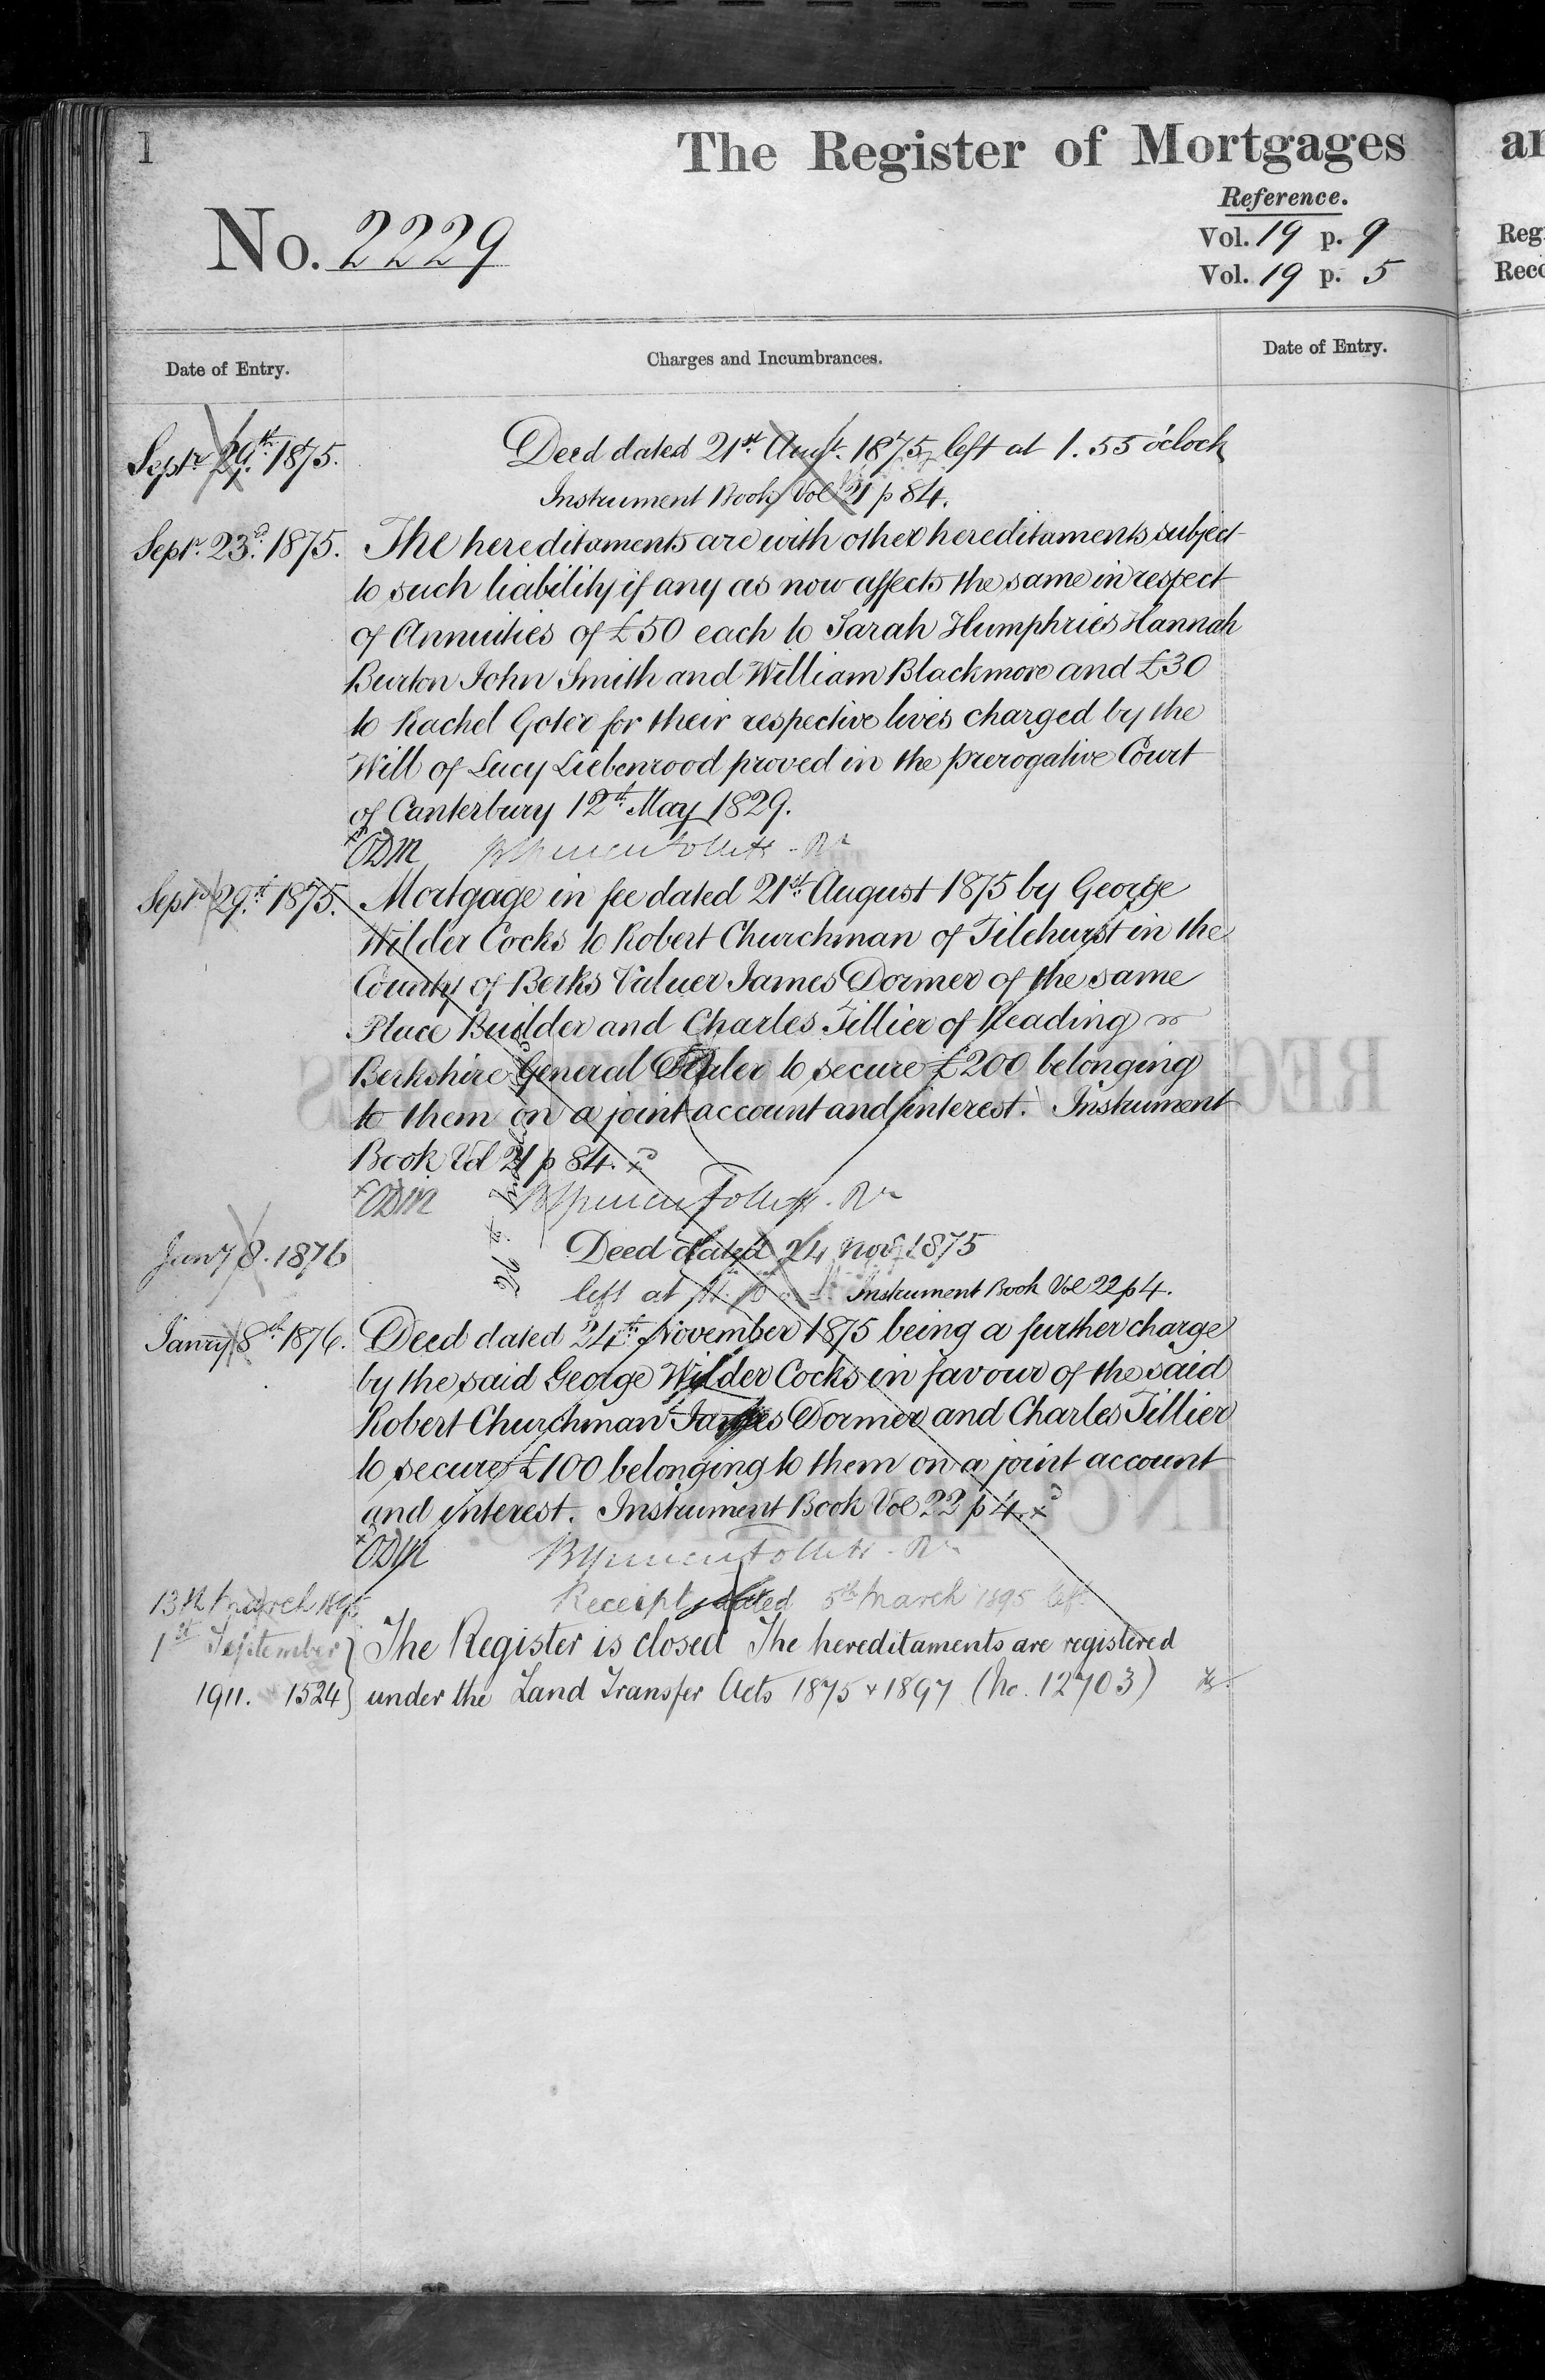 1
The Register of Mortgages
Reference.
No. 2229
Vol. 19 p. 9
Vol. 19 p. 5
Date of Entry.
Charges and Incumbrances.
Date of Entry.
Septr 29th 1875.
Deed dated 21st Augst. 1875, left at 1.55 o'clock
Instrument Book Vol 21 p 84.
Septr. 23d. 1875. The hereditaments are with other hereditaments subject
to such liability if any as now affects the same in respect
of Annuities of £50 each to Sarah Humphries Hannah
Burton John Smith and William Blackmore and £30
to Rachel Goter for their respective lives charged by the
Will of Lucy Liebenrood proved in the prerogative Court
of Canterbury 12th May 1829.
Sept 29th 1875. Mortgage in fee dated 21st August 1875 by George
Wilder Cocks to Robert Churchman of Tilehurst in the
County of Berks Valuer James Dormer of the same
Place Builder and Charles Tillier of Reading
Berkshire General Dealer to secure £200 belonging
to them on a joint account and interest. Instrument
Book Vol 21 p 84.
Jany 8. 1876
Deed dated 24 Novr 1875
left at Instrument Book Vol 22 p 4.
Janry 8th 1876. Deed dated 24th November 1875 being a further charge
by the said George Wilder Cocks in favour of the said
Robert Churchman James Dormer and Charles Tillier
to secure £100 belonging to them on a joint account
and interest. Instrument Book Vol 22 p 4.
13th March 1895
Receipt dated 5th March 1895 left
1st September } The Register is closed The hereditaments are registered
1911. 1524 } under the Land Transfer Acts 1875 & 1897 (No. 12703)
ar
Reg
Reco